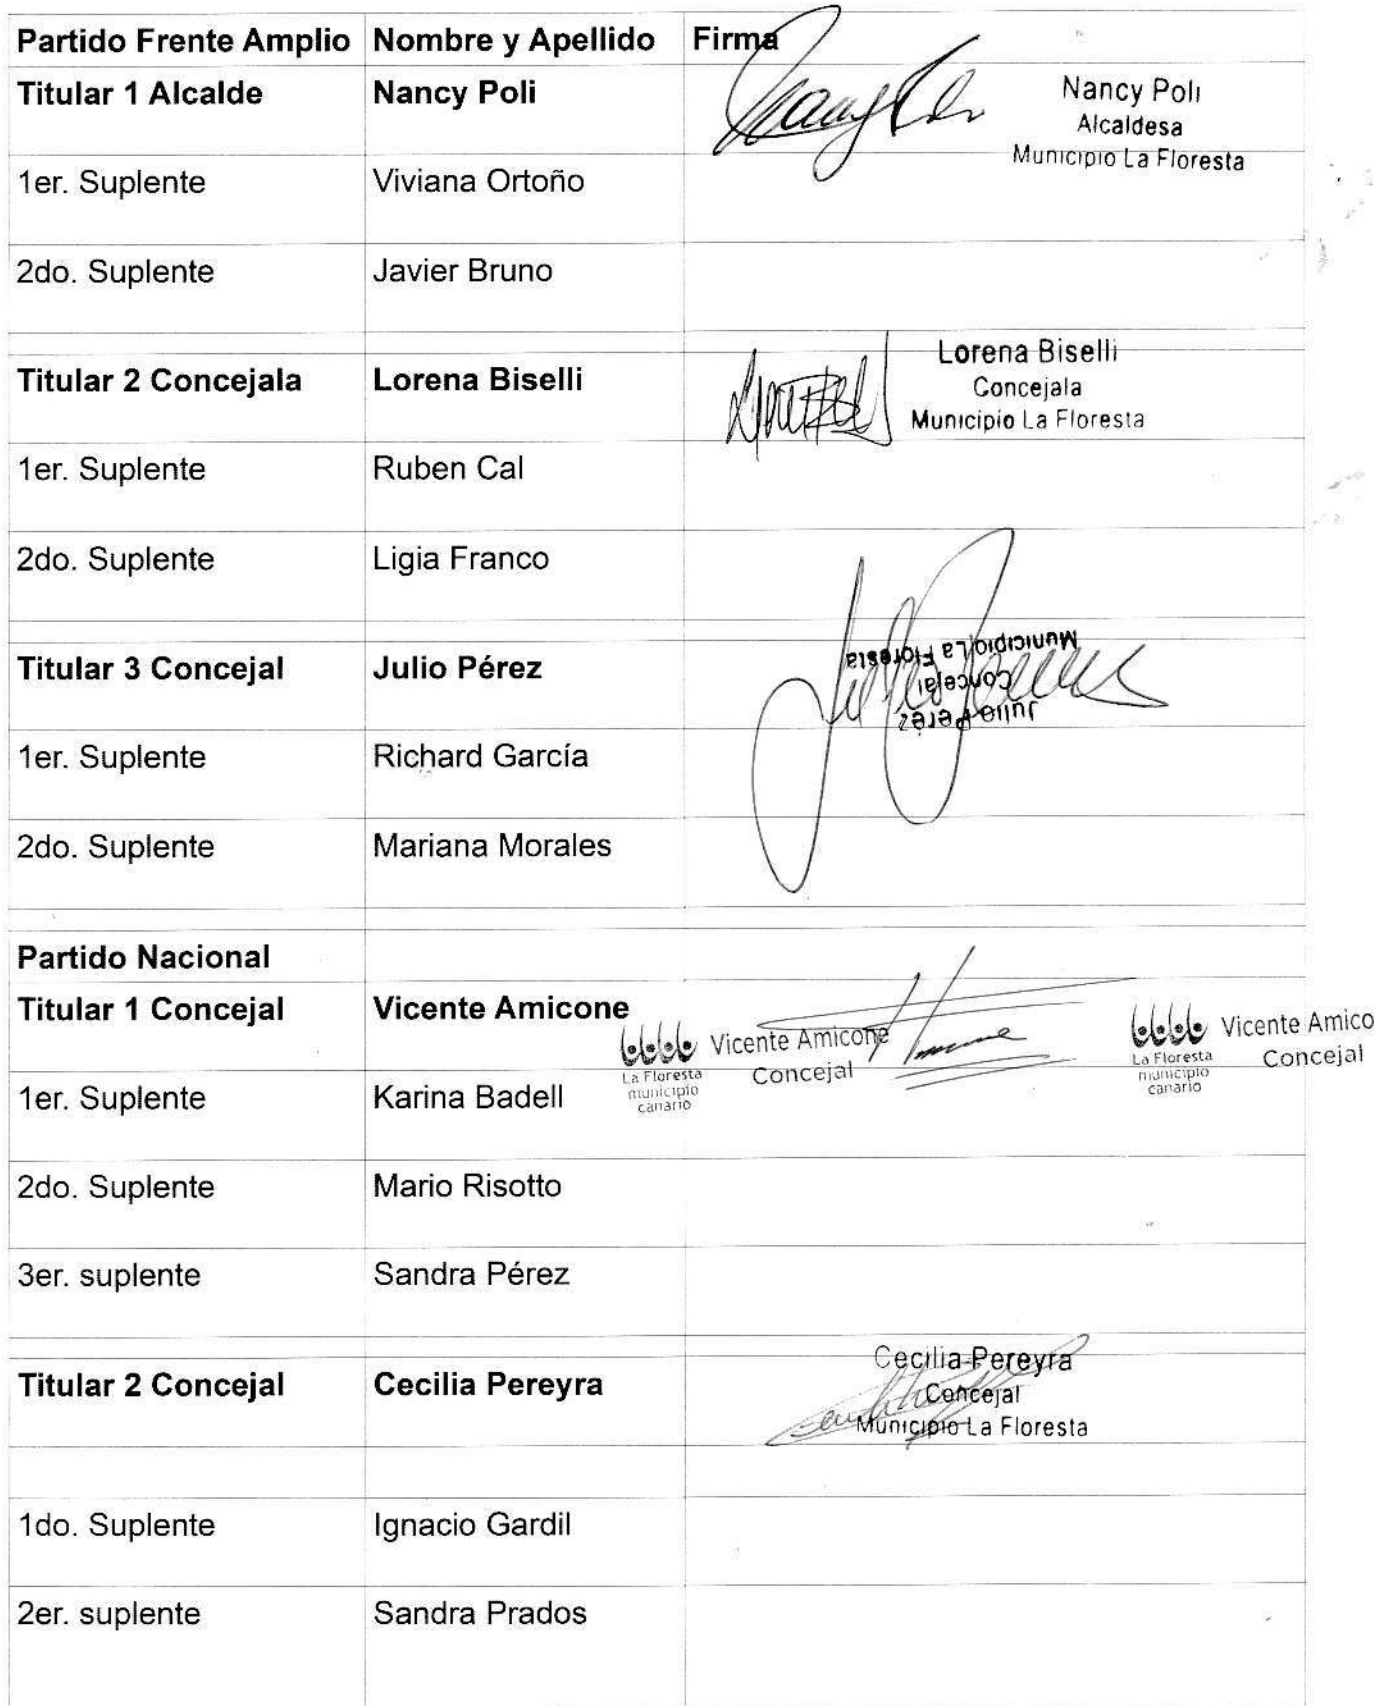 Partido Frente Amplio Nombre y Apellido Firma
Titular 1 Alcalde Nancy Poli
Nancy Poli
Alcaldesa
Municipio La Floresta
1er. Suplente Viviana Ortoño
2do. Suplente Javier Bruno
Titular 2 Concejala Lorena Biselli
Lorena Biselli
Concejala
Municipio La Floresta
1er. Suplente Ruben Cal
2do. Suplente Ligia Franco
Titular 3 Concejal Julio Pérez
Julio Pérez
Concejal
Municipio La Floresta
1er. Suplente Richard García
2do. Suplente Mariana Morales
Partido Nacional
Titular 1 Concejal Vicente Amicone
Vicente Amicone
Concejal
La Floresta
municipio
canario
Vicente Amico
Concejal
La Floresta
municipio
canario
1er. Suplente Karina Badell
2do. Suplente Mario Risotto
3er. suplente Sandra Pérez
Titular 2 Concejal Cecilia Pereyra
Cecilia Pereyra
Concejal
Municipio La Floresta
1do. Suplente Ignacio Gardil
2er. suplente Sandra Prados